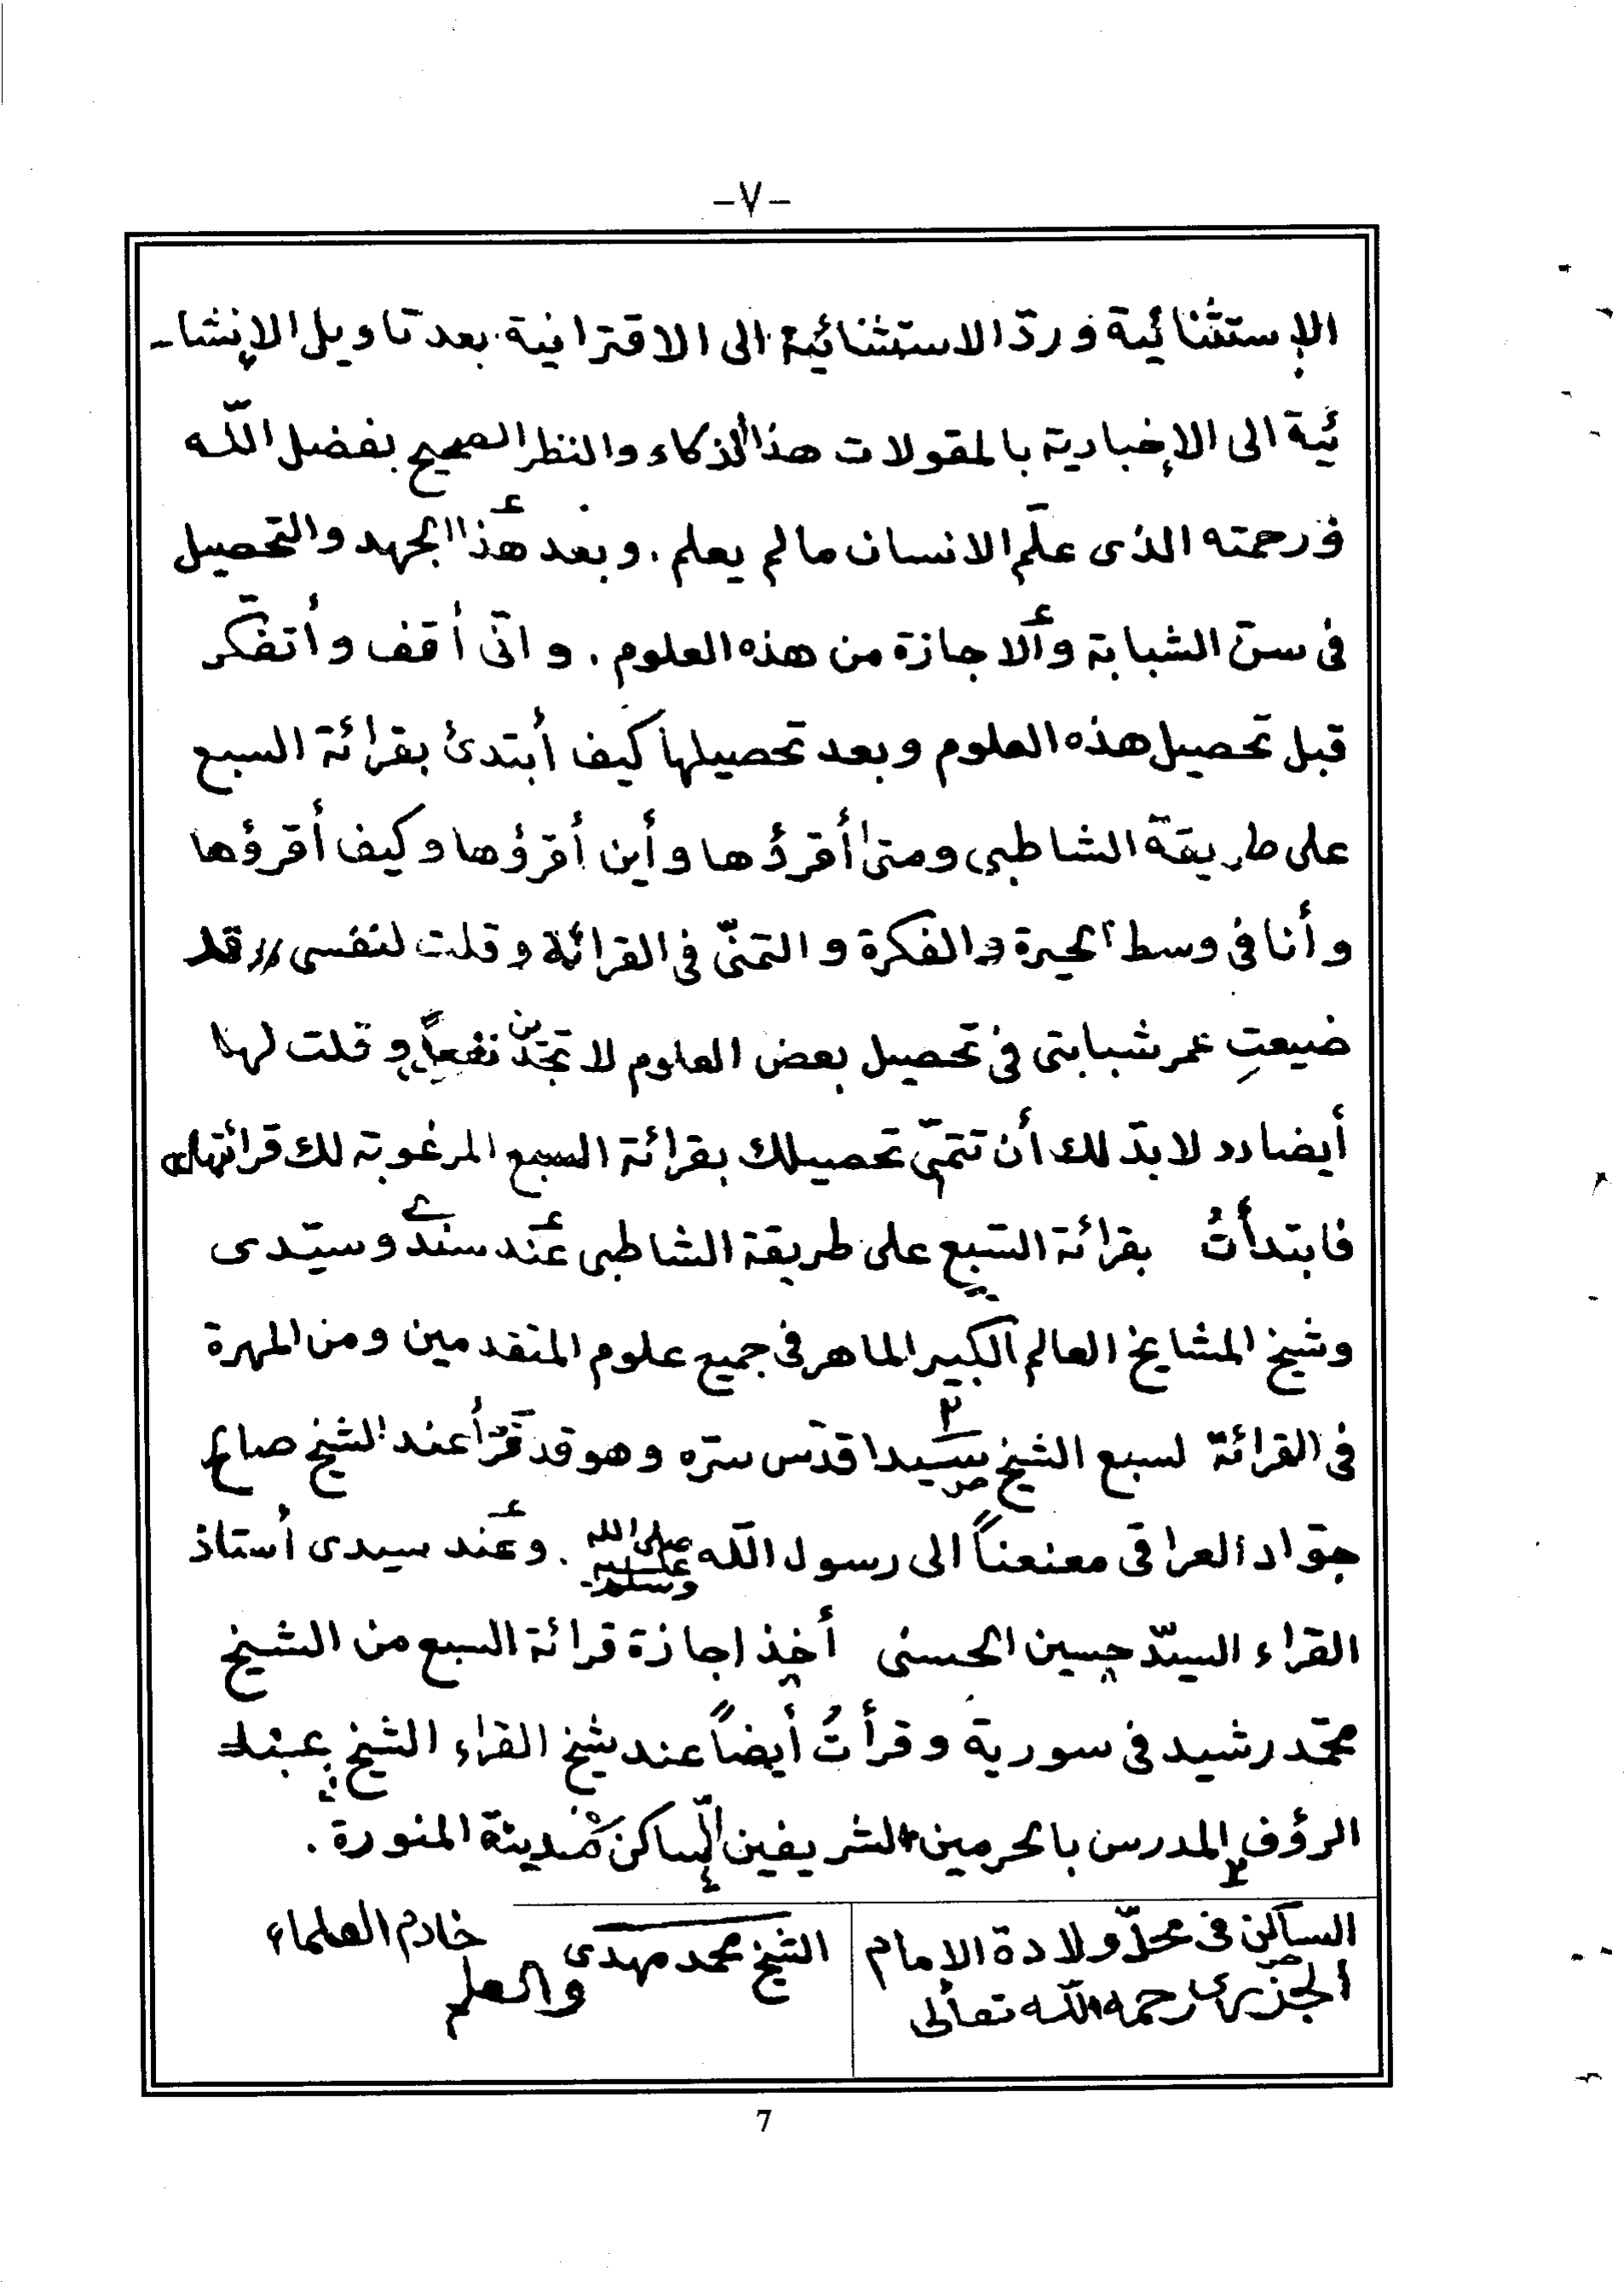 -٧-
الإستثنائية و ردّ الاستثنائية الى الاقترانية بعد تاويل الإنشا-
ئية الى الإخبارية بالمقولات هذا الذكاء والنظر الصحيح بفضل اللّه
و رحمته الذى علّم الانسان مالم يعلم . و بعد هذا الجهد والتحصيل
فى سنّ الشبابة والاجازة من هذه العلوم . و انّى أقف و أتفكّر
قبل تحصيل هذه العلوم و بعد تحصيلها كيف أبتدئ بقرائة السبع
على طريقة الشاطبى ومتى أقرؤها و أين أقرؤها و كيف أقرؤها
و أنا فى وسط الحيرة و الفكرة و التمنّى فى القرائة و قلت لنفسى // قد
ضيعتِ عمر شبابتى فى تحصيل بعض العلوم لا تجدين نفعاً // و قلت لها
أيضا // لا بدّ لك أن تتمّى تحصيلك بقرائة السبع المرغوبة لك قرائتها //
فابتدأتُ بقرائة السّبع على طريقة الشاطبى عند سندى و سيّدى
وشيخ المشايخ العالم الكبير الماهر فى جميع علوم المتقدمين و من المهرة
فى القرائة لسبع الشيخ سيدا قدّس سرّه و هو قد قرأ عند الشيخ صالح
جوّاد العراقى معنعناً الى رسول اللّه صلى الله عليه وسلم . و عند سيدى أستاذ
القراء السيّد حسين الحسنى أخذ اجازة قرائة السبع من الشيخ
محمّد رشيد فى سورية و قرأتُ أيضاً عند شيخ القراء الشيخ عبد
الرؤف المدرس بالحرمين الشريفين الساكن مدينة المنورة .
الساكن فى محلّ ولادة الامام
الجزرى رحمه اللّه تعالى
الشيخ محمد مهدى
خادم العلماء
والعلم
7